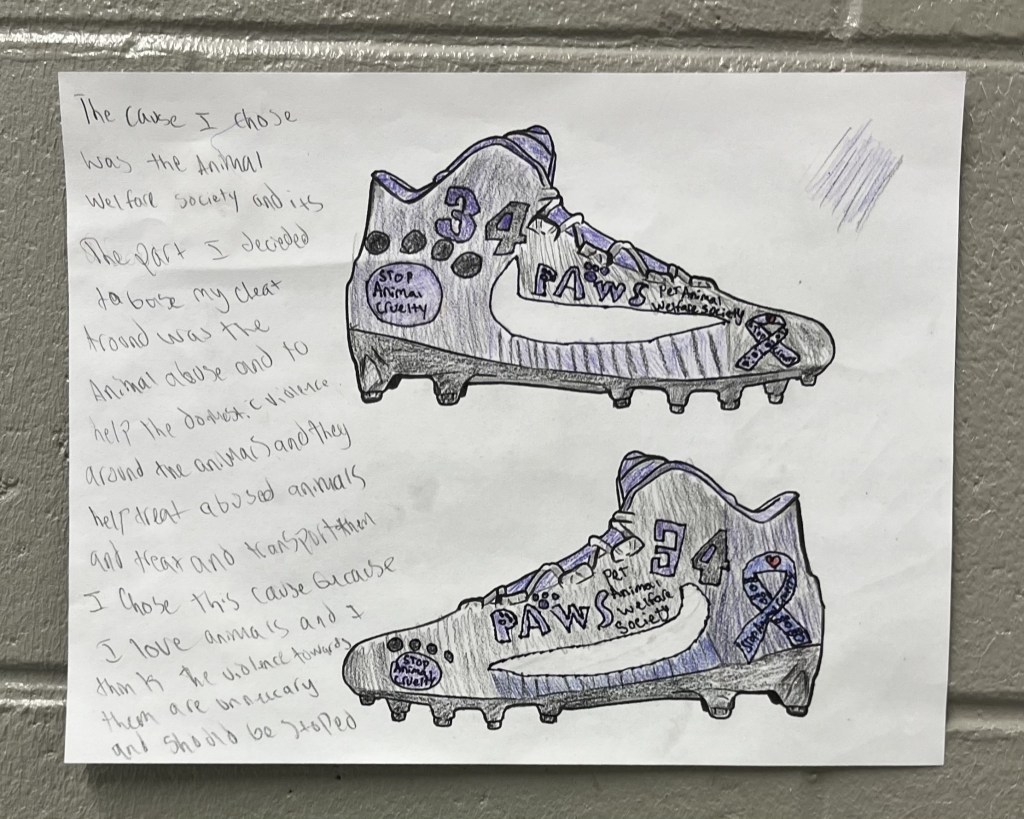 The cause I chose
was the Animal
Welfare society and its
The part I decieded
to base my cleat
around was the
Animal abuse and to
help the domestic violence
around the animals and they
help treat abused animals
and treat and transport them
I chose this cause because
I love animals and I
think the violence towards
them are unnecary
and should be stoped
34
STOP
Animal
Cruelty
PAWS
Pet Animal
Welfare society
34
PAWS
Pet
Animal
Welfare
Society
STOP
Animal
Cruelty